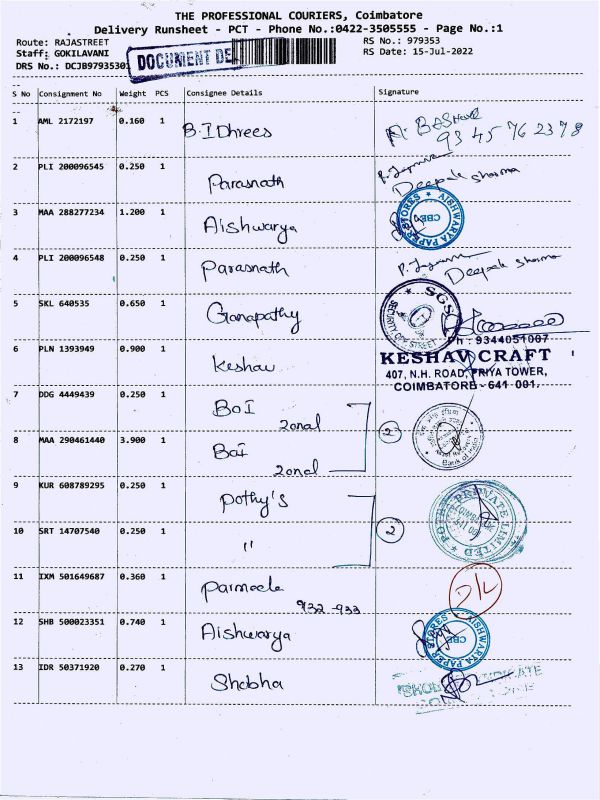 THE PROFESSIONAL COURIERS, Coimbatore
Delivery Runsheet - PCT - Phone No.:0422-3505555 - Page No.:1
Route: RAJASTREET
RS No.: 979353
Staff: GOKILAVANI
DOCUMENT DE
RS Date: 15-Jul-2022
DRS No.: DCJB97935301
S No Consignment No Weight PCS Consignee Details Signature
1 AML 2172197 0.160 1 B.I Dhrees
9345762378
2 PLI 200096545 0.250 1 Parasnath Deepak Sharma
3 MAA 288277234 1.200 1 Aishwarya
AISHWARYA PAPER STORES CBE
4 PLI 200096548 0.250 1 Parasnath Deepak Sharma
5 SKL 640535 0.650 1 Ganapathy
SGS SECURITY
STREET
6 PLN 1393949 0.900 1 Keshav
Ph : 9344051007
KESHAV CRAFT
407, N.H. ROAD, PRIYA TOWER,
COIMBATORE - 641 001.
7 DDG 4449439 0.250 1 BOI
Zonal
2
Bank of India
8 MAA 290461440 3.900 1 BOI
Zonal
9 KUR 608789295 0.250 1 Pothy's
2
POTHYS PRIVATE LIMITED
10 SRT 14707540 0.250 1 "
11 IXM 501649687 0.360 1
932-933
D/L
12 SHB 500023351 0.740 1 Aishwarya
AISHWARYA PAPER STORES CBE
13 IDR 50371920 0.270 1 Shobha